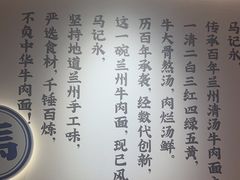 传承百年兰州清汤牛肉面
一清二白三红四绿五黄，
牛大骨熬汤，肉烂汤鲜。
历百年承袭，经数代创新，
这一碗兰州牛肉面，现已风
马记永，
坚持地道兰州手工味，
严选食材，千锤百炼，
不负中华牛肉面！
马记永，